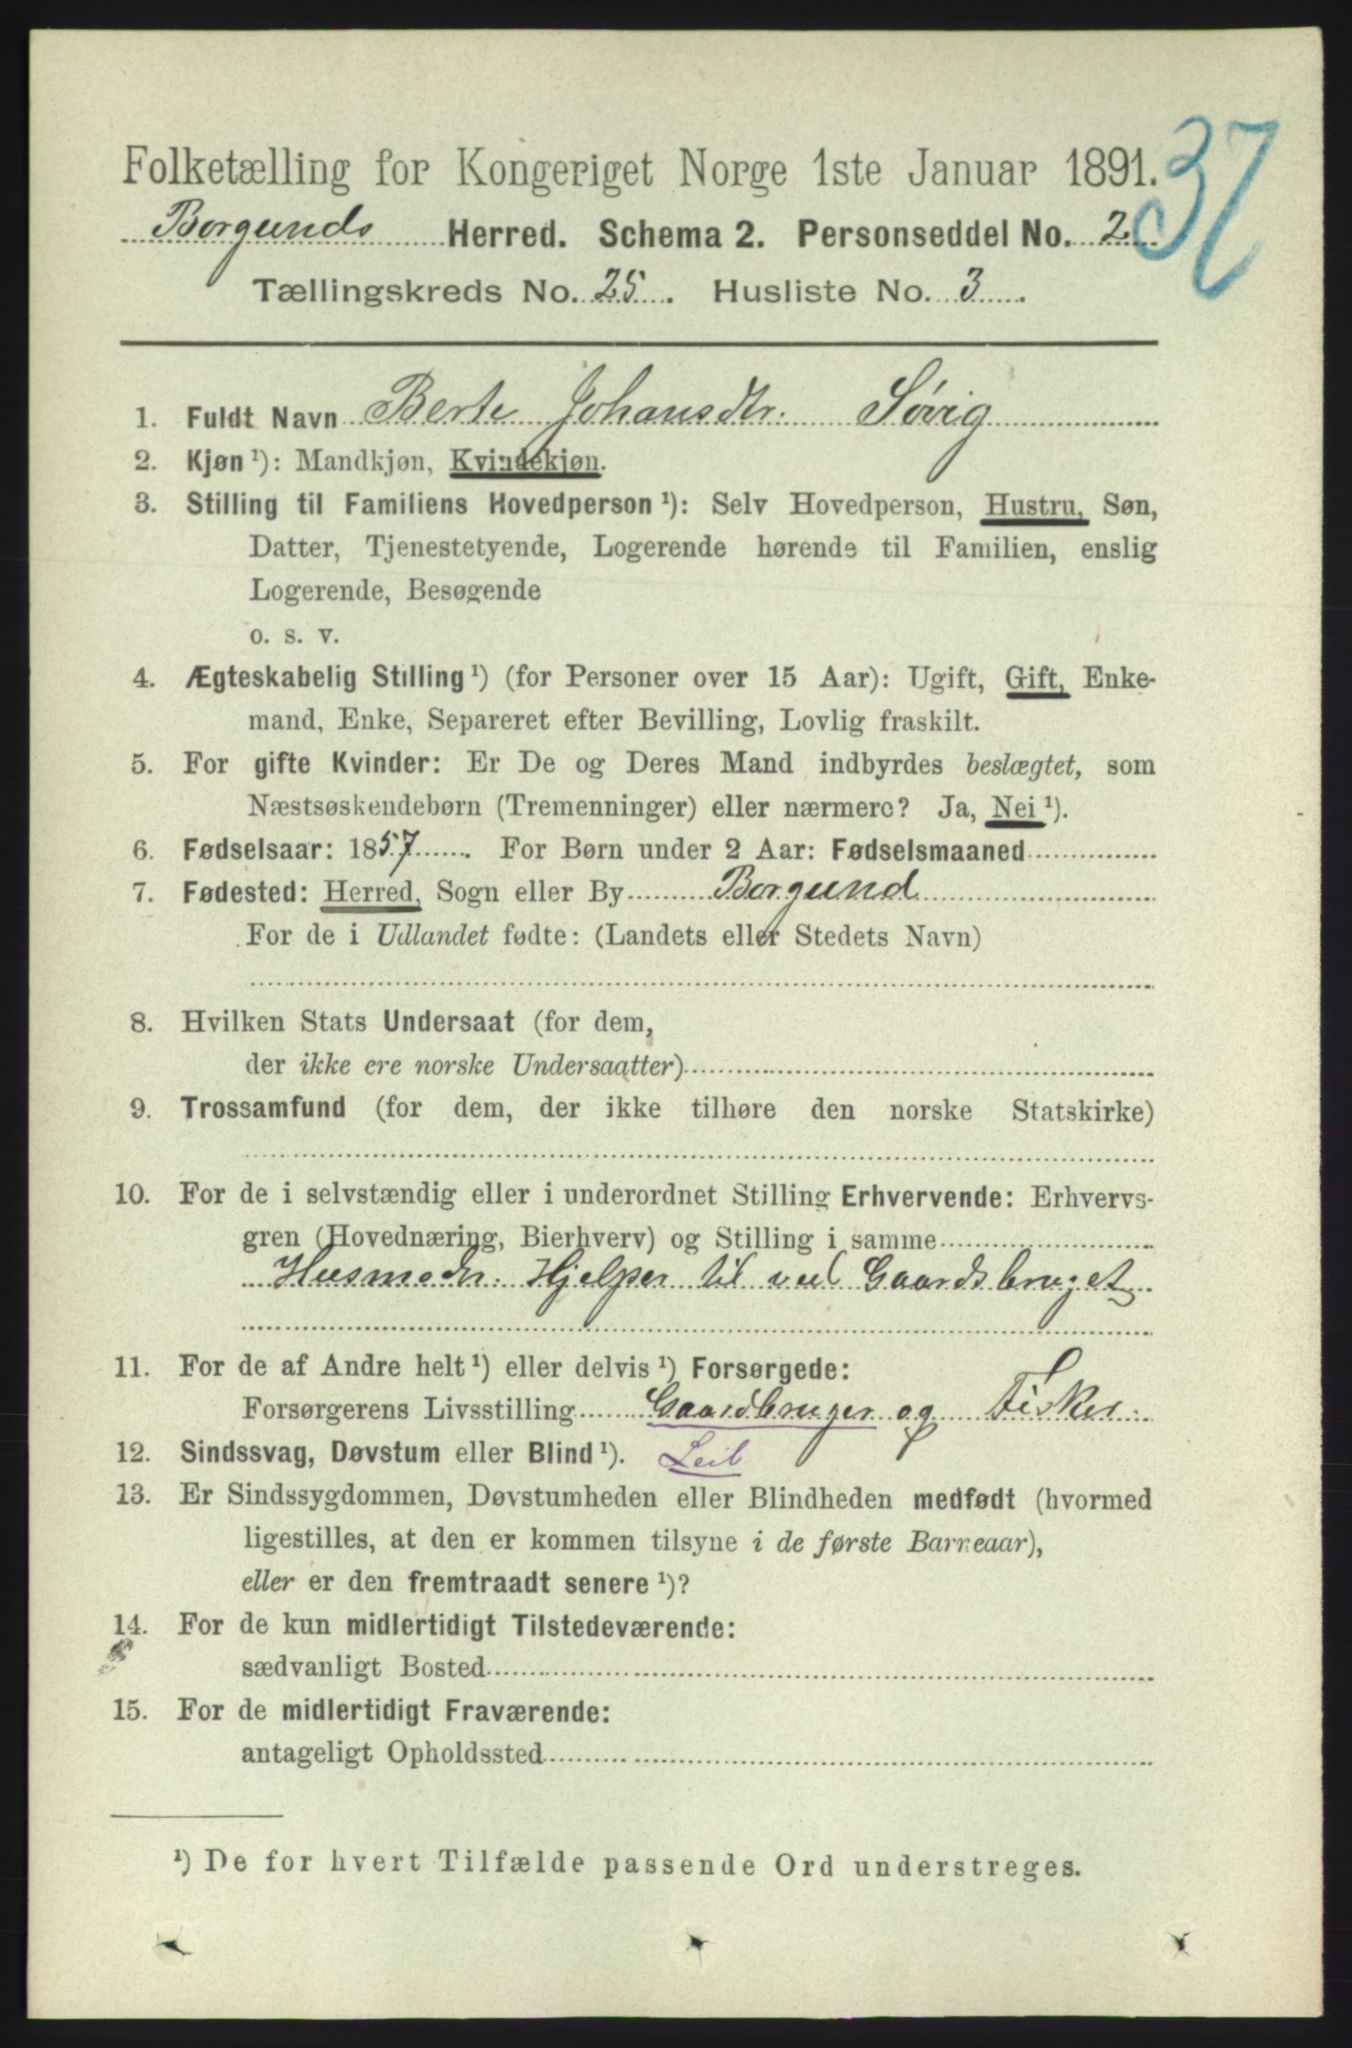 37
Folketælling for Kongeriget Norge 1ste Januar 1891.
Borgunds Herred. Schema 2. Personseddel No. 2
Tællingskreds No. 25. Husliste No. 3.
1. Fuldt Navn Berte Johansdtr. Søvig
2. Kjøn ¹): Mandkjøn, Kvindekjøn.
3. Stilling til Familiens Hovedperson ¹): Selv Hovedperson, Hustru, Søn,
Datter, Tjenestetyende, Logerende hørende til Familien, enslig
Logerende, Besøgende
o. s. v.
4. Ægteskabelig Stilling ¹) (for Personer over 15 Aar): Ugift, Gift, Enke-
mand, Enke, Separeret efter Bevilling, Lovlig fraskilt.
5. For gifte Kvinder: Er De og Deres Mand indbyrdes beslægtet, som
Næstsøskendebørn (Tremenninger) eller nærmere? Ja, Nei ¹).
6. Fødselsaar: 1857. For Børn under 2 Aar: Fødselsmaaned
7. Fødested: Herred, Sogn eller By Borgund
For de i Udlandet fødte: (Landets eller Stedets Navn)
8. Hvilken Stats Undersaat (for dem,
der ikke ere norske Undersaatter)
9. Trossamfund (for dem, der ikke tilhøre den norske Statskirke)
10. For de i selvstændig eller i underordnet Stilling Erhvervende: Erhvervs-
gren (Hovednæring, Bierhverv) og Stilling i samme
Husmodr. Hjelper til ved Gaardsbruget
11. For de af Andre helt ¹) eller delvis ¹) Forsørgede:
Forsørgerens Livsstilling Gaardbruger og Fisker.
12. Sindssvag, Døvstum eller Blind ¹). Leil
13. Er Sindssygdommen, Døvstumheden eller Blindheden medfødt (hvormed
ligestilles, at den er kommen tilsyne i de første Barneaar),
eller er den fremtraadt senere ¹)?
14. For de kun midlertidigt Tilstedeværende:
sædvanligt Bosted
15. For de midlertidigt Fraværende:
antageligt Opholdssted
¹) De for hvert Tilfælde passende Ord understreges.